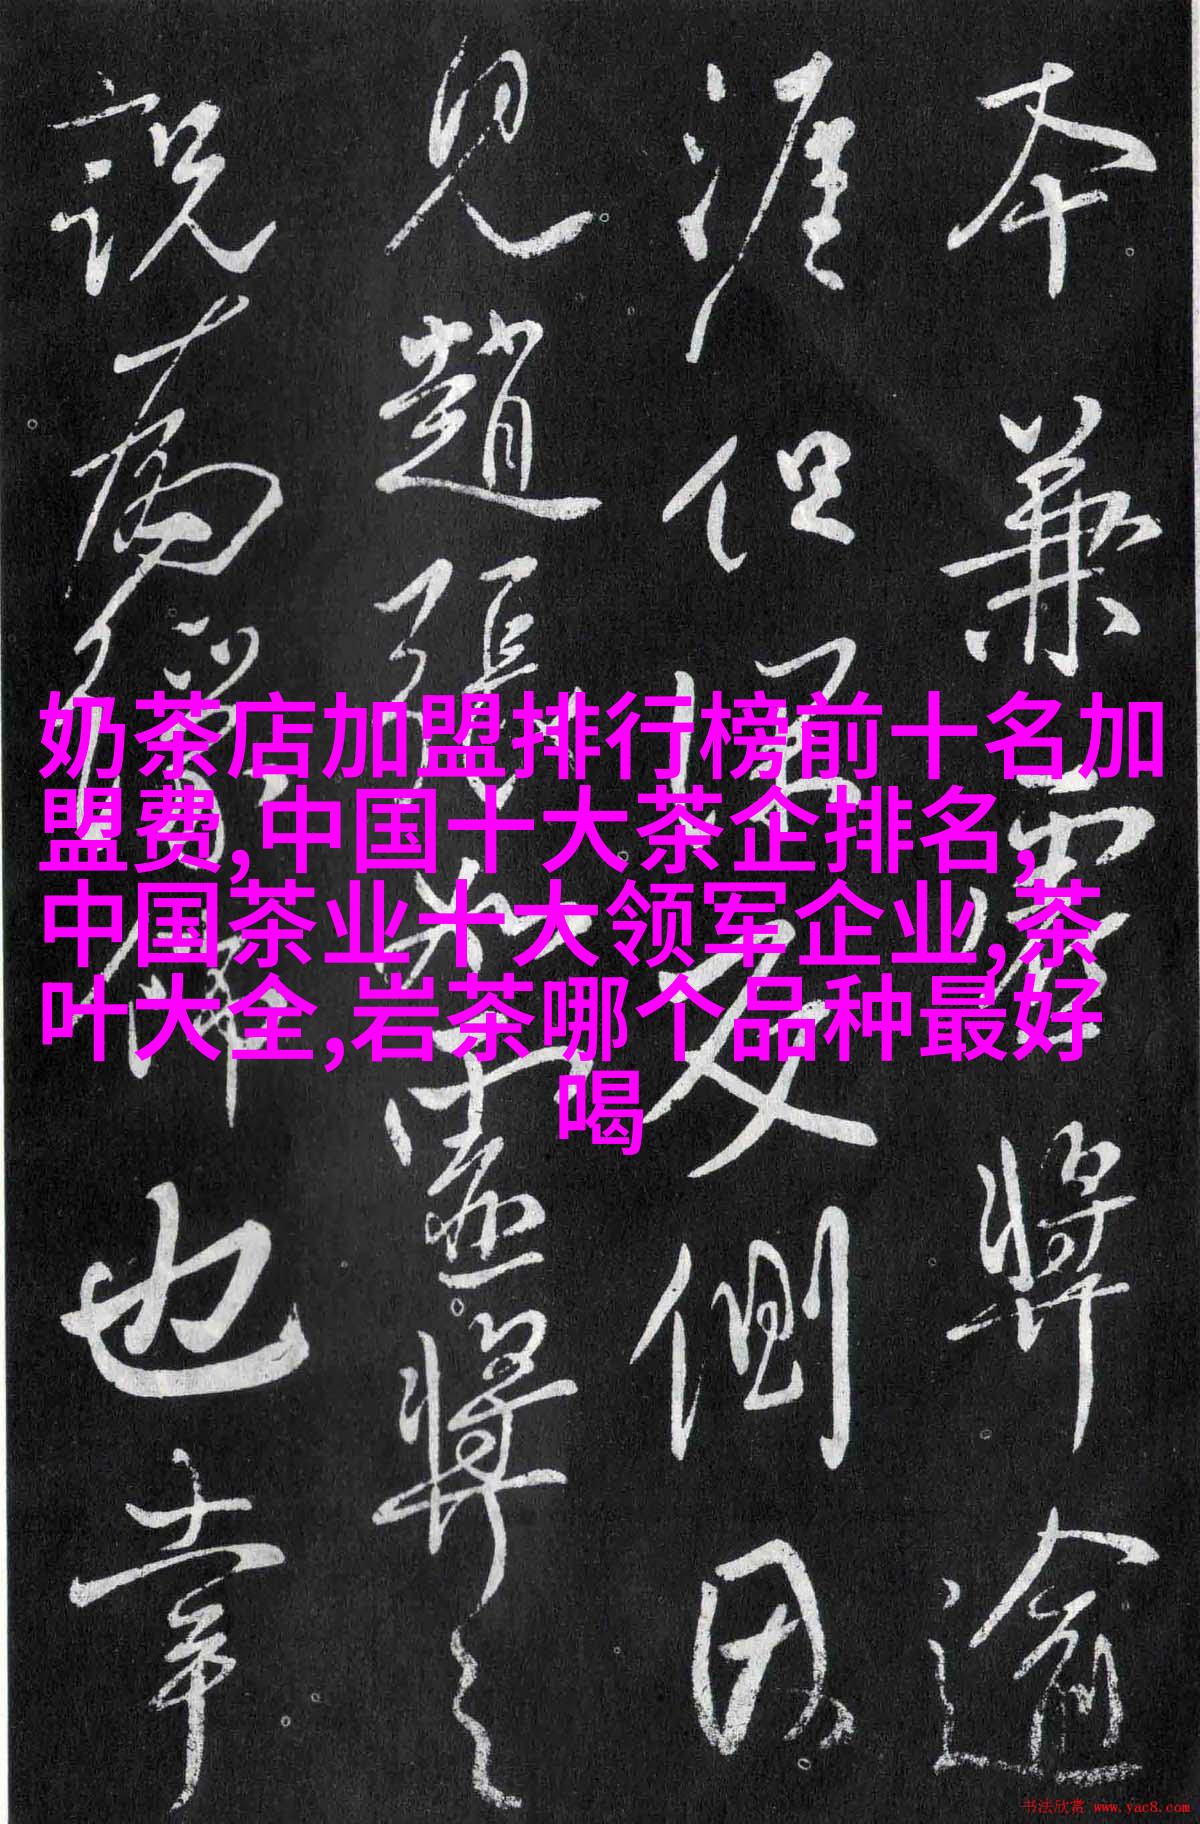 奶茶店加盟排行榜前十名加
盟费,中国十大茶企排名,
中国茶业十大领军企业,茶
叶大全,岩茶哪个品种最好
喝
本兼
将逾
涯但
反侧因
见趙張
盡將之
説
也章
书法欣赏 www.yac8.com